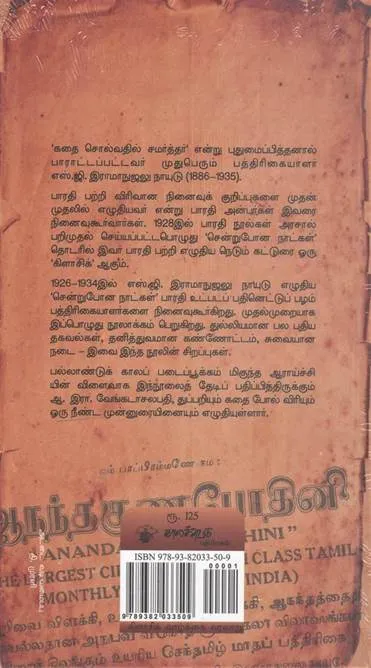 'கதை சொல்வதில் சமர்த்தர்' என்று புதுமைப்பித்தனால்
பாராட்டப்பட்டவர் முதுபெரும் பத்திரிகையாளர்
எஸ்.ஜி. இராமாநுஜலு நாயுடு (1886-1935).
பாரதி பற்றி விரிவான நினைவுக் குறிப்புகளை முதன்
முதலில் எழுதியவர் என்று பாரதி அன்பர்கள் இவரை
நினைவுகூர்வார்கள். 1928இல் பாரதி நூல்கள் அரசால்
பறிமுதல் செய்யப்பட்டபொழுது 'சென்றுபோன நாட்கள்'
தொடரில் இவர் பாரதி பற்றி எழுதிய நெடும் கட்டுரை ஒரு
'கிளாசிக்' ஆகும்.
1926-1934இல் எஸ்.ஜி. இராமாநுஜலு நாயுடு எழுதிய
'சென்றுபோன நாட்கள்' பாரதி உட்பட பதினெட்டுப் பழம்
பத்திரிகையாளர்களை நினைவுகூர்கிறது. முதல்முறையாக
இப்பொழுது நூலாக்கம் பெறுகிறது. துல்லியமான பல புதிய
தகவல்கள், தனித்துவமான கண்ணோட்டம், சுவையான
நடை – இவை இந்த நூலின் சிறப்புகள்.
பல்லாண்டுக் காலப் படைப்பூக்கம் மிகுந்த ஆராய்ச்சி
யின் விளைவாக இந்நூலைத் தேடிப் பதிப்பித்திருக்கும்
ஆ. இரா. வேங்கடாசலபதி, துப்பறியும் கதை போல் விரியும்
ஒரு நீண்ட முன்னுரையினையும் எழுதியுள்ளார்.
ஆனந்தகுணபோதினி
ரூ. 125
காலச்சுவடு
பதிப்பகம்
"ANANDA HINI"
HE LARGEST CI CLASS TAMIL
MONTHLY INDIA)
ISBN 978-93-82033-50-9
00001
9 789382 033509
உயரிய செந்தமிழ் மாதப் பத்திரிகை